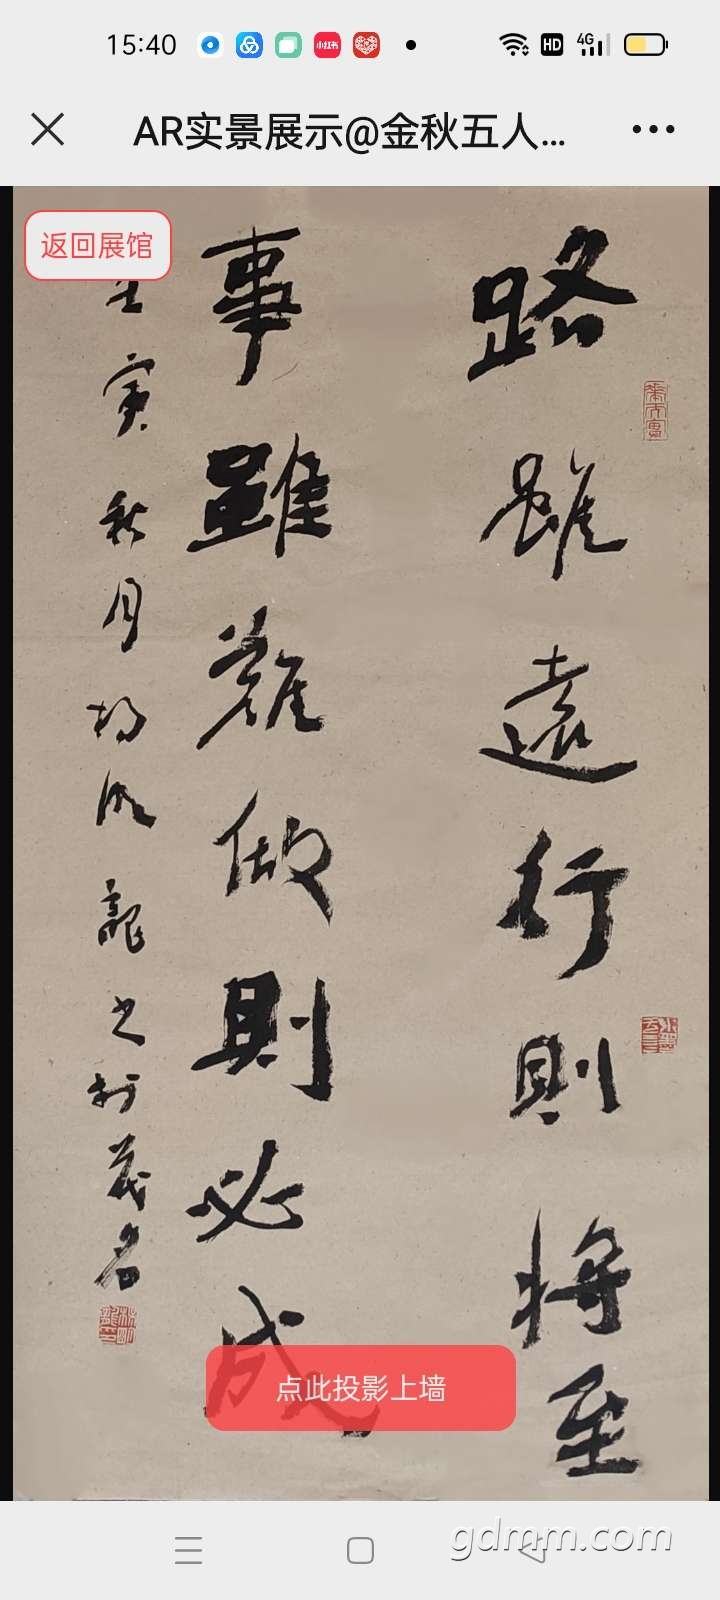 15:40
小红书
HD
4G
AR实景展示@金秋五人...
返回展馆
路雖遠行則將至
事雖難做則必成
壬寅秋月杨明龍書於茂名
点此投影上墙
gdmm.com